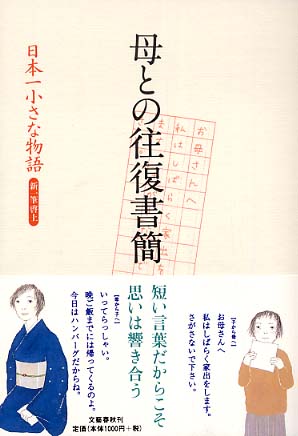 母との往復書簡
日本一小さな物語
新一筆啓上
お母さんへ
私はしばらく家出を
短い言葉だからこそ
思いは響き合う
【子から母へ】
お母さんへ
私はしばらく家出をします。
さがさないで下さい。
【母から子へ】
いってらっしゃい。
晩ご飯までには帰ってくるのよ。
今日はハンバーグだからね。
文藝春秋刊
定価(本体1000円+税)